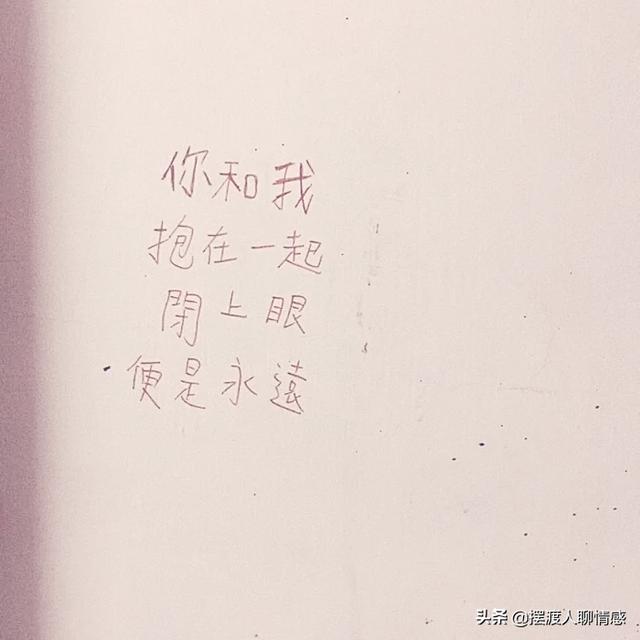 你和我
抱在一起
閉上眼
便是永遠
头条 @摆渡人聊情感